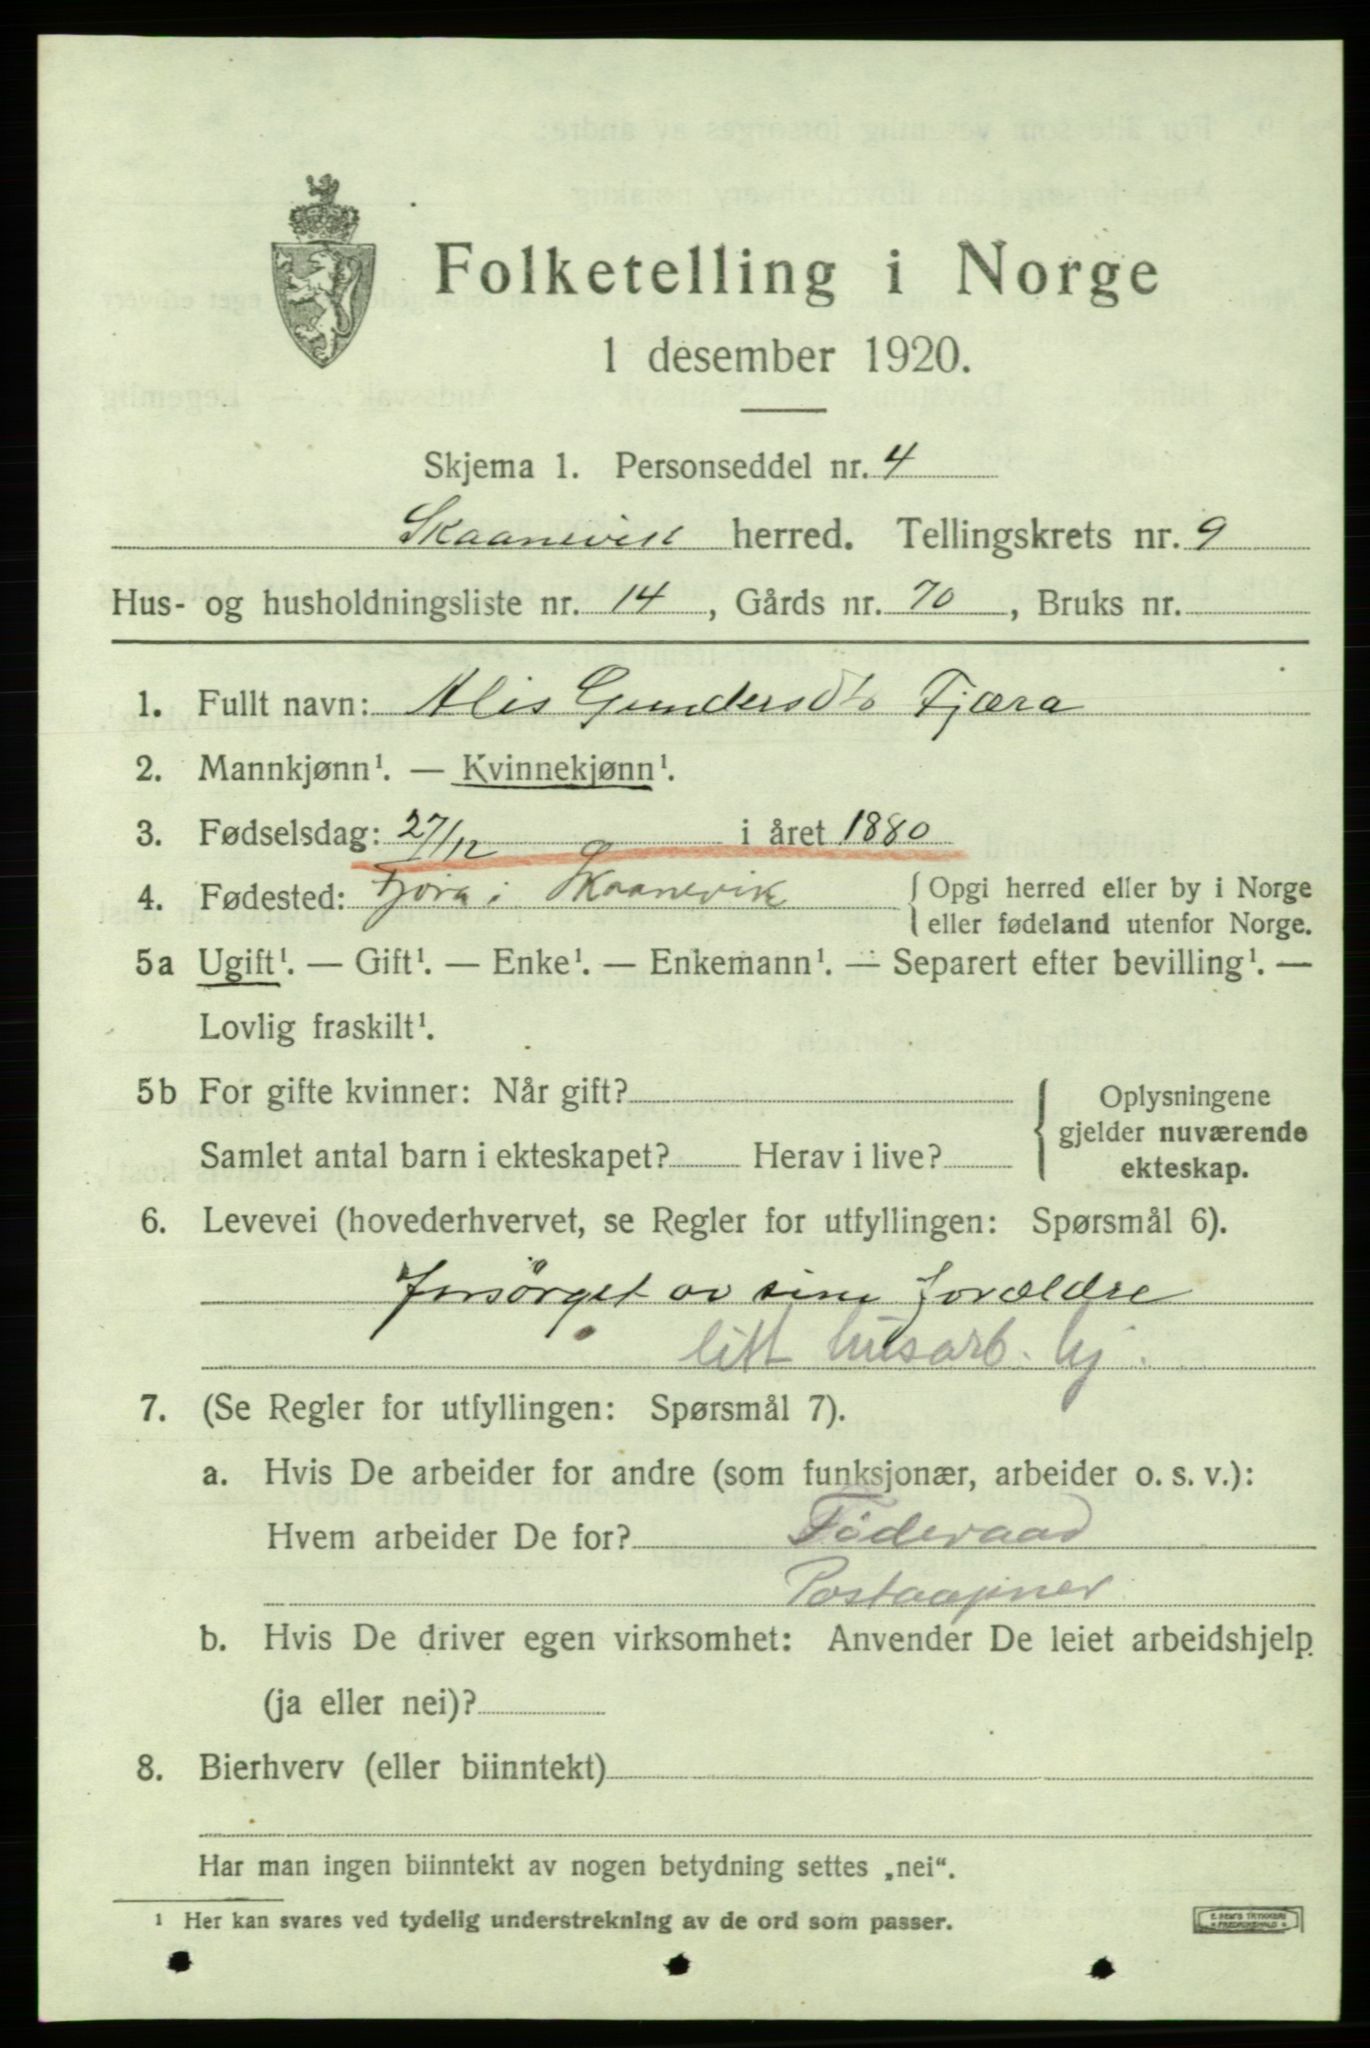 Folketelling i Norge
1 desember 1920.
Skjema 1. Personseddel nr. 4
Skaanevik herred. Tellingskrets nr. 9
Hus- og husholdningsliste nr. 14, Gårds nr. 70, Bruks nr.
1. Fullt navn: Alis Gundersdtr Fjæra
2. Mannkjønn¹. — Kvinnekjønn¹.
3. Fødselsdag: 27/12 i året 1880
4. Fødested: i Skaanevik { Opgi herred eller by i Norge
eller fødeland utenfor Norge.
5a Ugift¹. — Gift¹. — Enke¹. — Enkemann¹. — Separert efter bevilling¹. —
Lovlig fraskilt¹.
5b For gifte kvinner: Når gift? { Oplysningene
gjelder nuværende
Samlet antal barn i ekteskapet? Herav i live?
ekteskap.
6. Levevei (hovederhvervet, se Regler for utfyllingen: Spørsmål 6).
Forsørget av sine forældre
litt husarb. hj.
7. (Se Regler for utfyllingen: Spørsmål 7).
a. Hvis De arbeider for andre (som funksjonær, arbeider o. s. v.):
Hvem arbeider De for? Föderaad
Postaapner
b. Hvis De driver egen virksomhet: Anvender De leiet arbeidshjelp
(ja eller nei)?
8. Bierhverv (eller biinntekt)
Har man ingen biinntekt av nogen betydning settes „nei“.
¹ Her kan svares ved tydelig understrekning av de ord som passer.